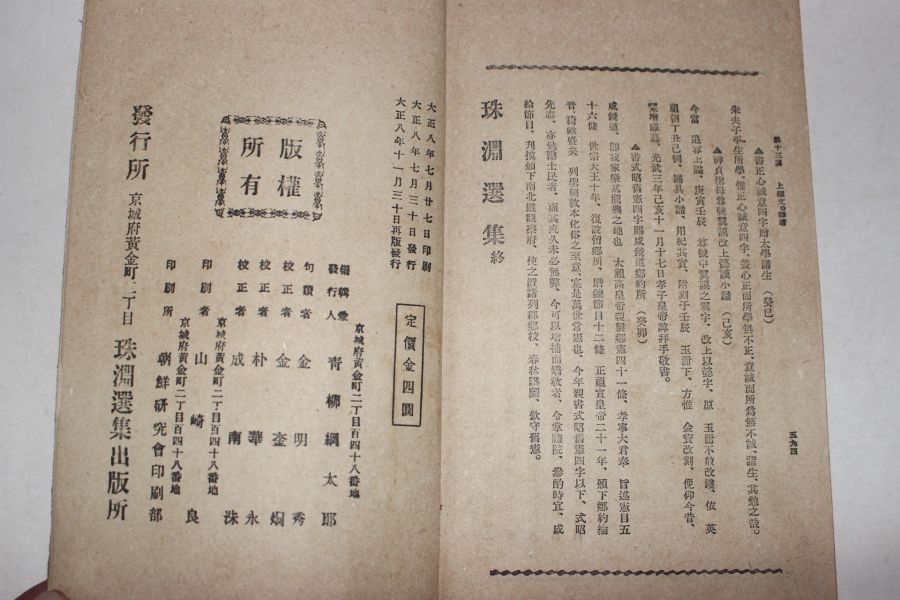 第十三講 上號文〇雜著
五九四
朱夫子平生所學、惟正心誠意四字、蓋心正而所學無不正、意誠而所爲無不誠、諸生、其勉之哉。
▲書正心誠意四字贈太學諸生 (癸巳)
▲神貞懿母尊號翼謨改上懿謨小識 (己亥)
今當 追尊上諡、庚寅壬辰 尊號中翼謨之翼字、改上以懿字、原 玉冊不敢改鐫、依 英
祖朝丁丑已例、謹具小識、用紀其實、附刻于壬辰 玉冊下、方惟 金寶改刻、俛仰今昔、
光武三年己亥十一月十七日孝子皇帝諱拜手敬書。
▲書式昭舊憲四字賜咸鏡道鄉約所 (癸卯)
咸鏡道、卽我家肇基龍興之地也 太祖高皇帝親製鄉憲四十一條、孝寧大君奉 旨述憲目五
十六條 世宗大王十年、復設留鄉所、磨鍊節目十二條 正祖宣皇帝二十一年、頒下鄉約綸
音 猗歟盛矣 列聖朝敦本化俗之至意、寔是萬世當憲也、今年親書式昭舊憲四字以下、式昭
先志、亦勉勵士民者、而其或久未必無弊、今可以增補而矯救者、令掌禮院、叅酌時宜、成
給節目、刊揭頒下南北道觀察府、使之置諸列郡鄉校、春秋講劘、欽守舊憲。
珠淵選集 終
大正八年七月廿七日印刷
大正八年七月三十日發行
大正八年十一月三十日再版發行
版權
所有
定價金四圓
京城府黃金町二丁目百四十八番地
編輯兼
發行人 青柳綱太郎
句讀者 金明秀
校正者 金奎炯
校正者 朴華永
校正者 成南洙
京城府黃金町二丁目百四十八番地
印刷者 山崎良
京城府黃金町二丁目百四十八番地
印刷所 朝鮮研究會印刷部
發行所 京城府黃金町二丁目 珠淵選集出版所